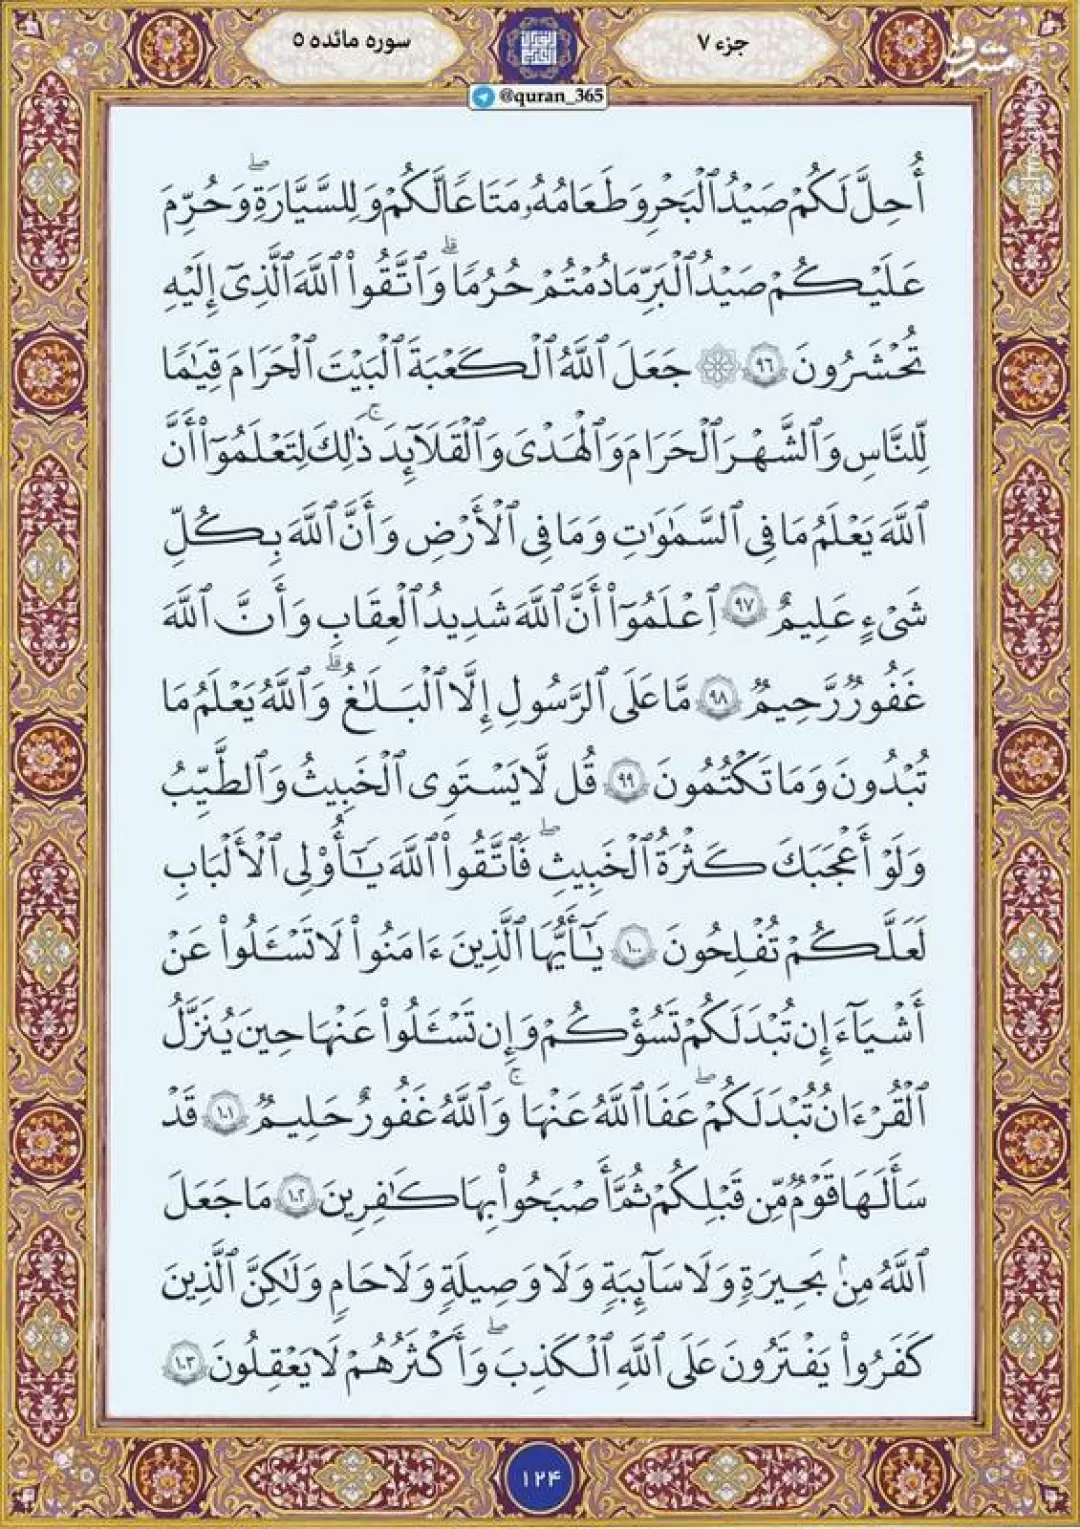 جزء ۷
سوره مائده ۵
@quran_365
مشرق
mashreghnews.ir
أُحِلَّ لَكُمۡ صَيۡدُ ٱلۡبَحۡرِ وَطَعَامُهُۥ مَتَٰعٗا لَّكُمۡ وَلِلسَّيَّارَةِۖ وَحُرِّمَ
عَلَيۡكُمۡ صَيۡدُ ٱلۡبَرِّ مَا دُمۡتُمۡ حُرُمٗاۗ وَٱتَّقُواْ ٱللَّهَ ٱلَّذِيٓ إِلَيۡهِ
تُحۡشَرُونَ ۹۶ ۞ جَعَلَ ٱللَّهُ ٱلۡكَعۡبَةَ ٱلۡبَيۡتَ ٱلۡحَرَامَ قِيَٰمٗا
لِّلنَّاسِ وَٱلشَّهۡرَ ٱلۡحَرَامَ وَٱلۡهَدۡيَ وَٱلۡقَلَٰٓئِدَۚ ذَٰلِكَ لِتَعۡلَمُوٓاْ أَنَّ
ٱللَّهَ يَعۡلَمُ مَا فِي ٱلسَّمَٰوَٰتِ وَمَا فِي ٱلۡأَرۡضِ وَأَنَّ ٱللَّهَ بِكُلِّ
شَيۡءٍ عَلِيمٌ ۹۷ ٱعۡلَمُوٓاْ أَنَّ ٱللَّهَ شَدِيدُ ٱلۡعِقَابِ وَأَنَّ ٱللَّهَ
غَفُورٞ رَّحِيمٞ ۹۸ مَّا عَلَى ٱلرَّسُولِ إِلَّا ٱلۡبَلَٰغُۗ وَٱللَّهُ يَعۡلَمُ مَا
تُبۡدُونَ وَمَا تَكۡتُمُونَ ۹۹ قُل لَّا يَسۡتَوِي ٱلۡخَبِيثُ وَٱلطَّيِّبُ
وَلَوۡ أَعۡجَبَكَ كَثۡرَةُ ٱلۡخَبِيثِۖ فَٱتَّقُواْ ٱللَّهَ يَٰٓأُوْلِي ٱلۡأَلۡبَٰبِ
لَعَلَّكُمۡ تُفۡلِحُونَ ۱۰۰ يَٰٓأَيُّهَا ٱلَّذِينَ ءَامَنُواْ لَا تَسۡـَٔلُواْ عَنۡ
أَشۡيَآءَ إِن تُبۡدَ لَكُمۡ تَسُؤۡكُمۡ وَإِن تَسۡـَٔلُواْ عَنۡهَا حِينَ يُنَزَّلُ
ٱلۡقُرۡءَانُ تُبۡدَ لَكُمۡۖ عَفَا ٱللَّهُ عَنۡهَاۚ وَٱللَّهُ غَفُورٌ حَلِيمٞ ۱۰۱ قَدۡ
سَأَلَهَا قَوۡمٞ مِّن قَبۡلِكُمۡ ثُمَّ أَصۡبَحُواْ بِهَا كَٰفِرِينَ ۱۰۲ مَا جَعَلَ
ٱللَّهُ مِنۢ بَحِيرَةٖ وَلَا سَآئِبَةٖ وَلَا وَصِيلَةٖ وَلَا حَامٖ وَلَٰكِنَّ ٱلَّذِينَ
كَفَرُواْ يَفۡتَرُونَ عَلَى ٱللَّهِ ٱلۡكَذِبَۖ وَأَكۡثَرُهُمۡ لَا يَعۡقِلُونَ ۱۰۳
۱۲۴